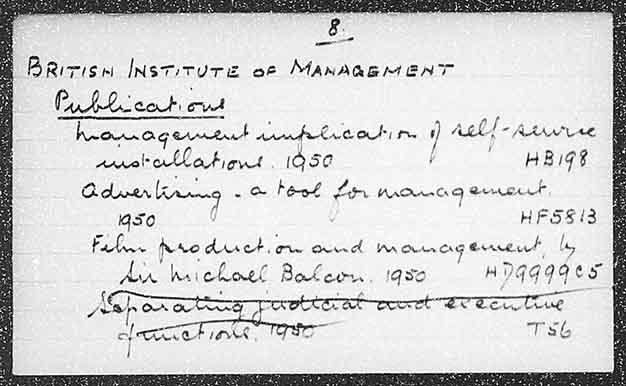 8.
BRITISH INSTITUTE OF MANAGEMENT
Publications
Management implication of self-service
installations. 1950 HB198
Advertising - a tool for management.
1950 HF5813
Film production and management, by
Sir Michael Balcon. 1950 HD9999C5
Separating judicial and executive
functions. 1950 T56